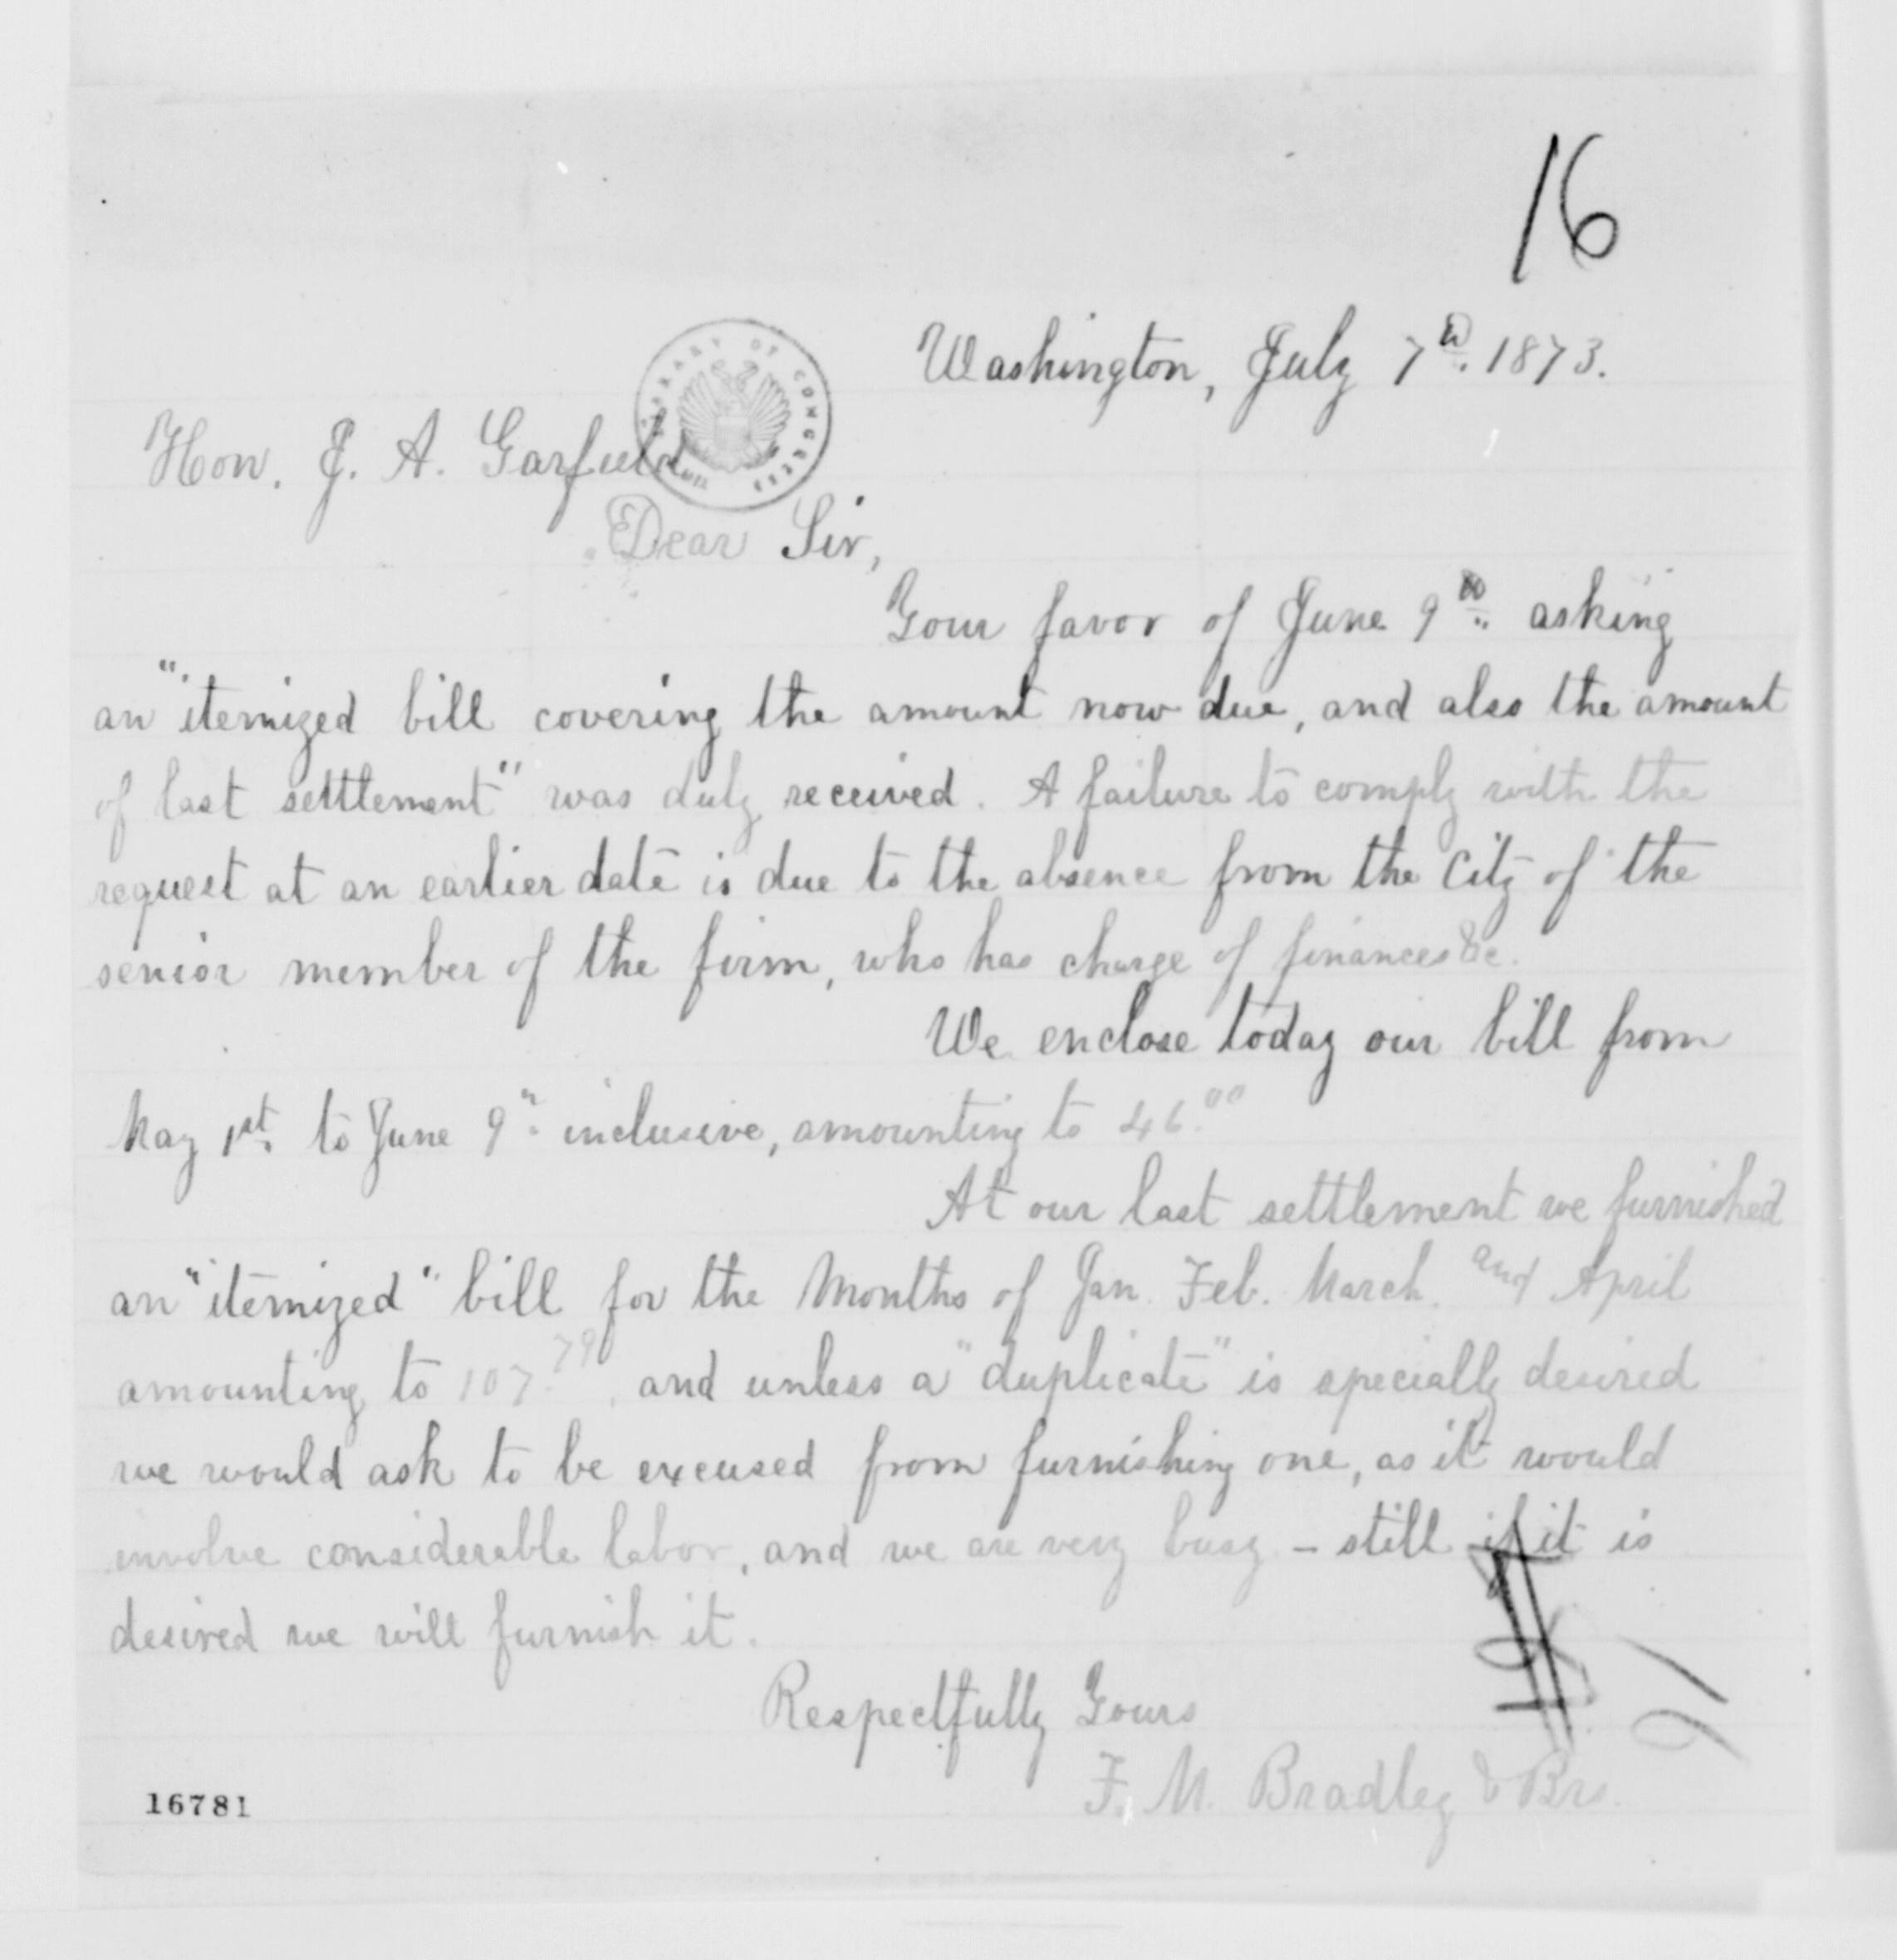 16
Washington, July 7th. 1873.
LIBRARY OF CONGRESS
Hon. J. A. Garfield
Dear Sir,
Your favor of June 9th. asking
an "itemized bill covering the amount now due, and also the amount
of last settlement" was duly received. A failure to comply with the
request at an earlier date is due to the absence from the City of the
senior member of the firm, who has charge of finances &c.
We enclose today our bill from
May 1st. to June 9". inclusive, amounting to 46.00
At our last settlement we furnished
an "itemized" bill for the Months of Jan. Feb. March. and April
amounting to 107.79, and unless a "duplicate" is specially desired
we would ask to be excused from furnishing one, as it would
involve considerable labor, and we are very busy - still if it is
desired we will furnish it.
Respectfully Yours
F. M. Bradley & Bro.
16781